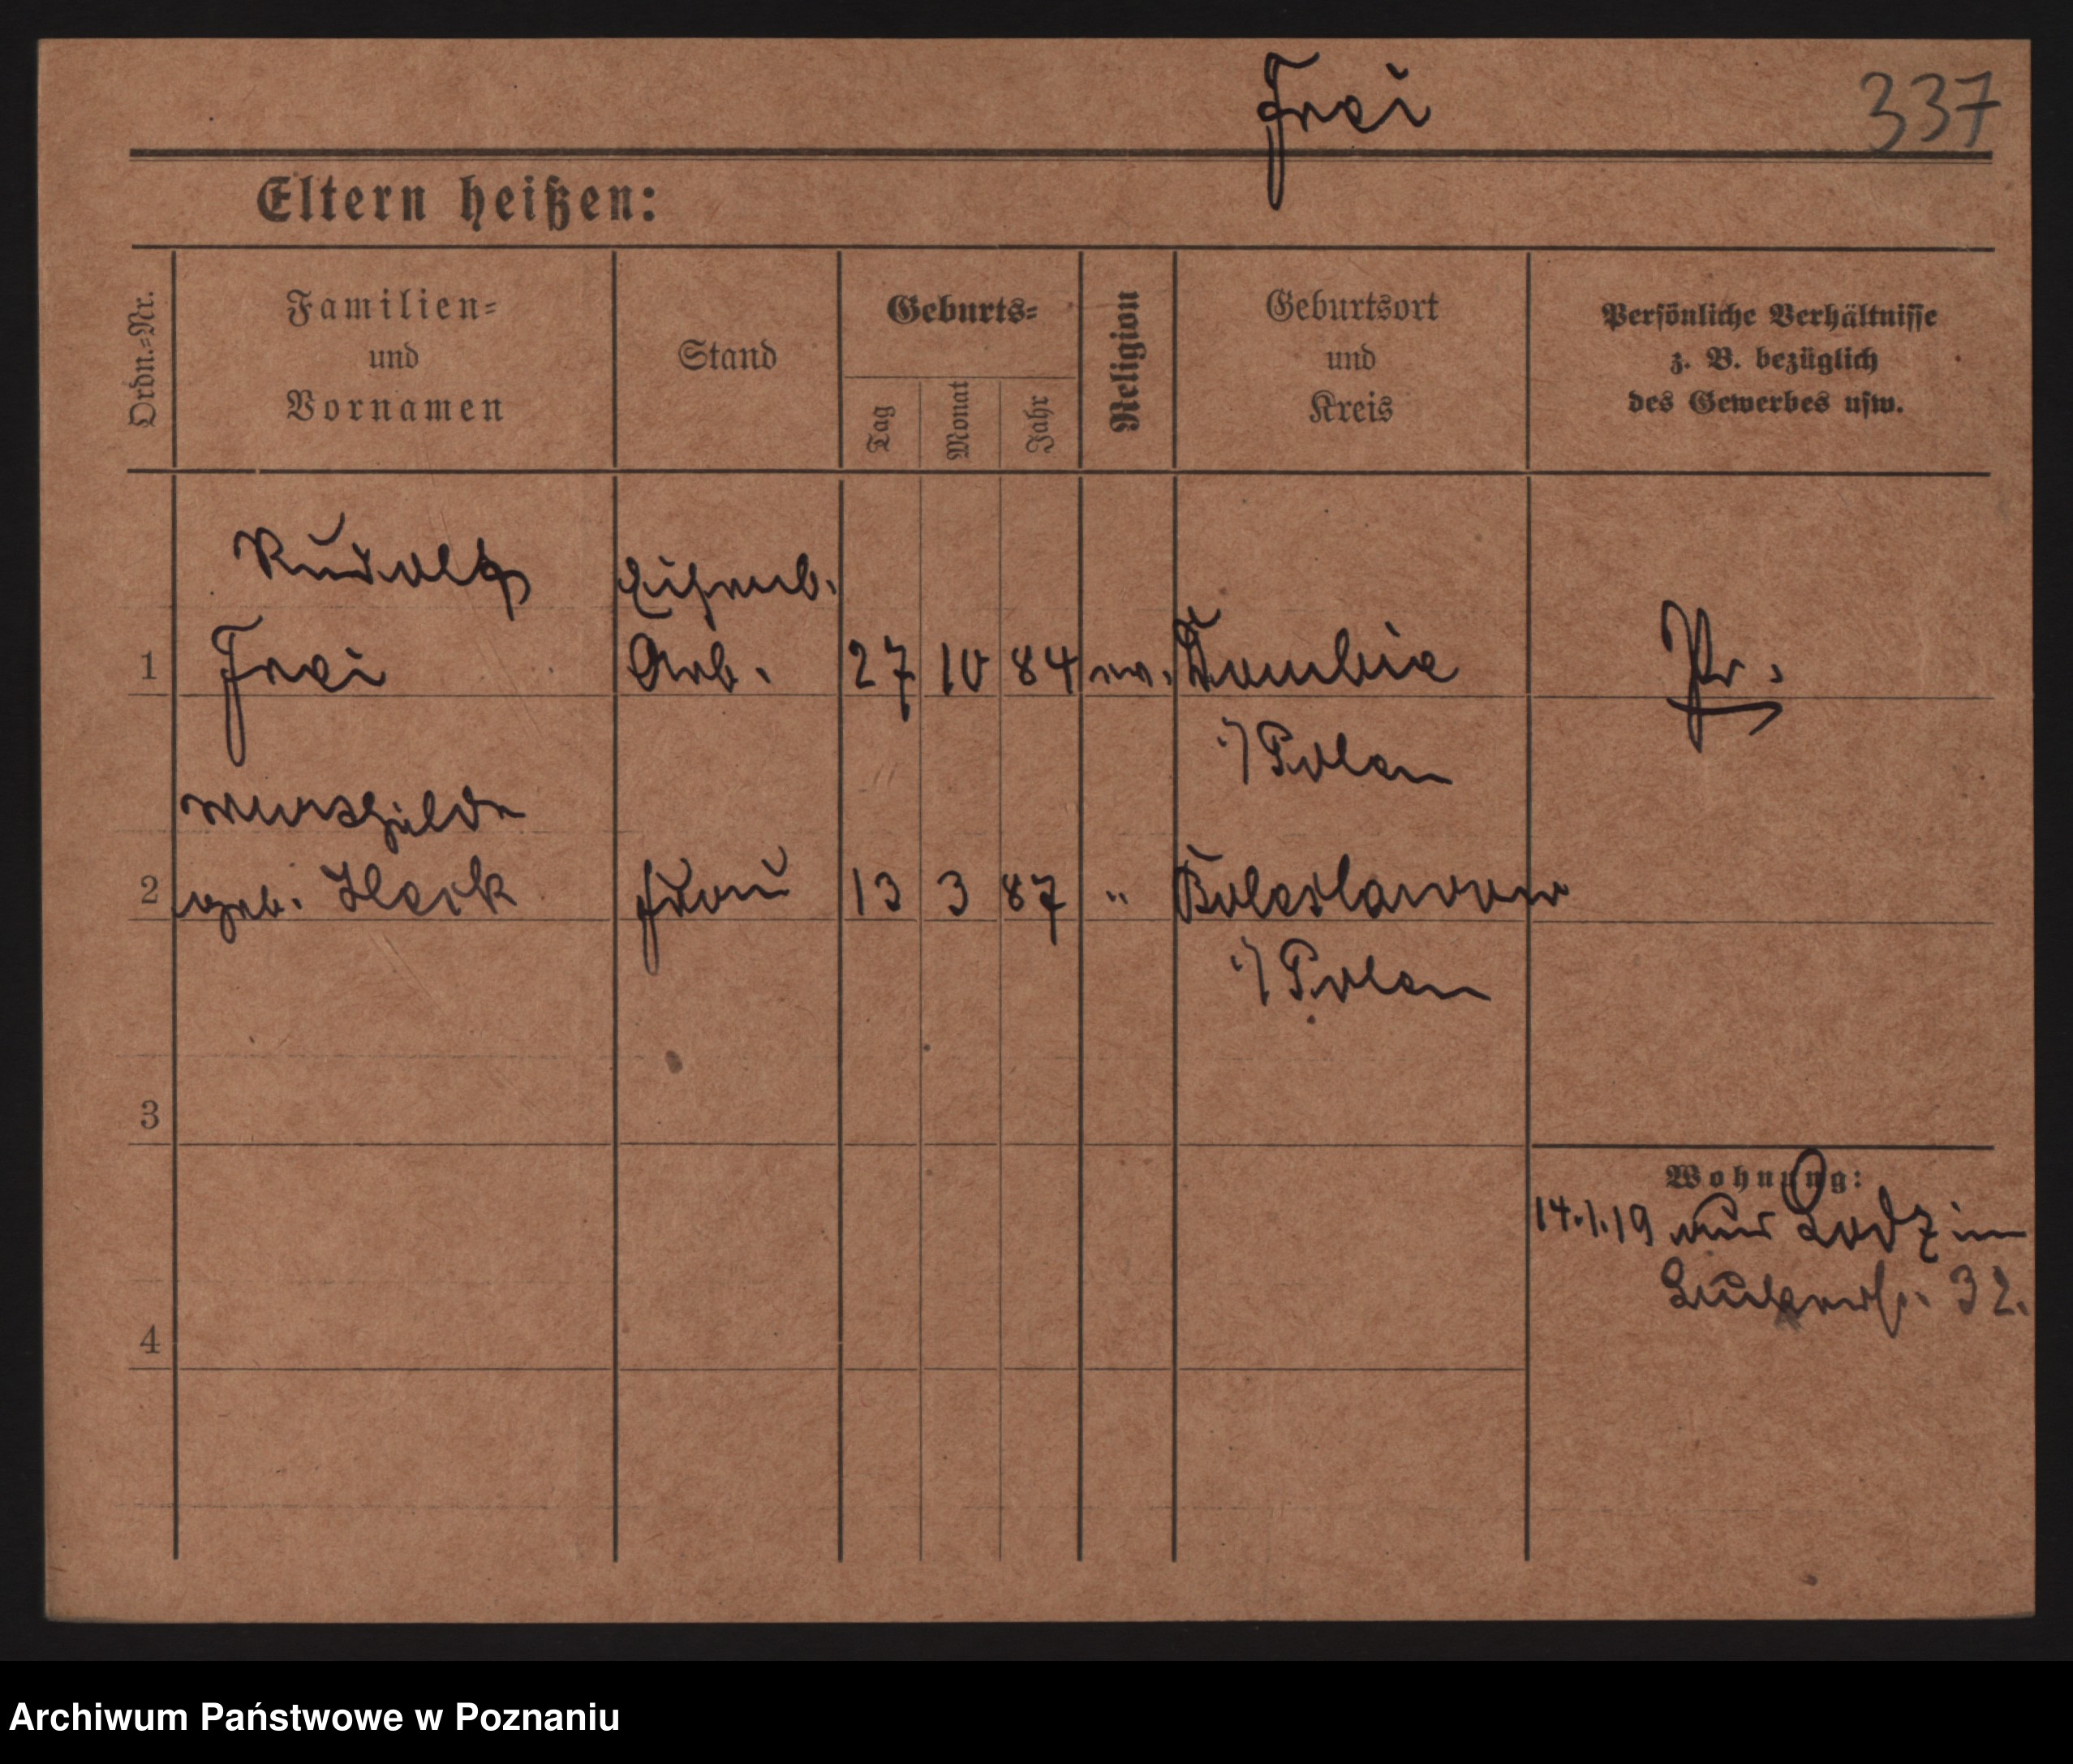 Frei
337
Eltern heißen:
Ordn.-Nr.
Familien-
und
Vornamen
Stand
Geburts-
Tag
Monat
Jahr
Religion
Geburtsort
und
Kreis
Persönliche Verhältnisse
z. B. bezüglich
des Gewerbes usw.
Rudolf Eisenb.
1 Frei Arb. 27 10 84 ev. Dombie Pr.
i/ Polen
2 geb. Frau 13 3 87 " Boleslawow
i/ Polen
3
Wohnung:
14.1.19 aus Lodz in
32.
4
Archiwum Państwowe w Poznaniu